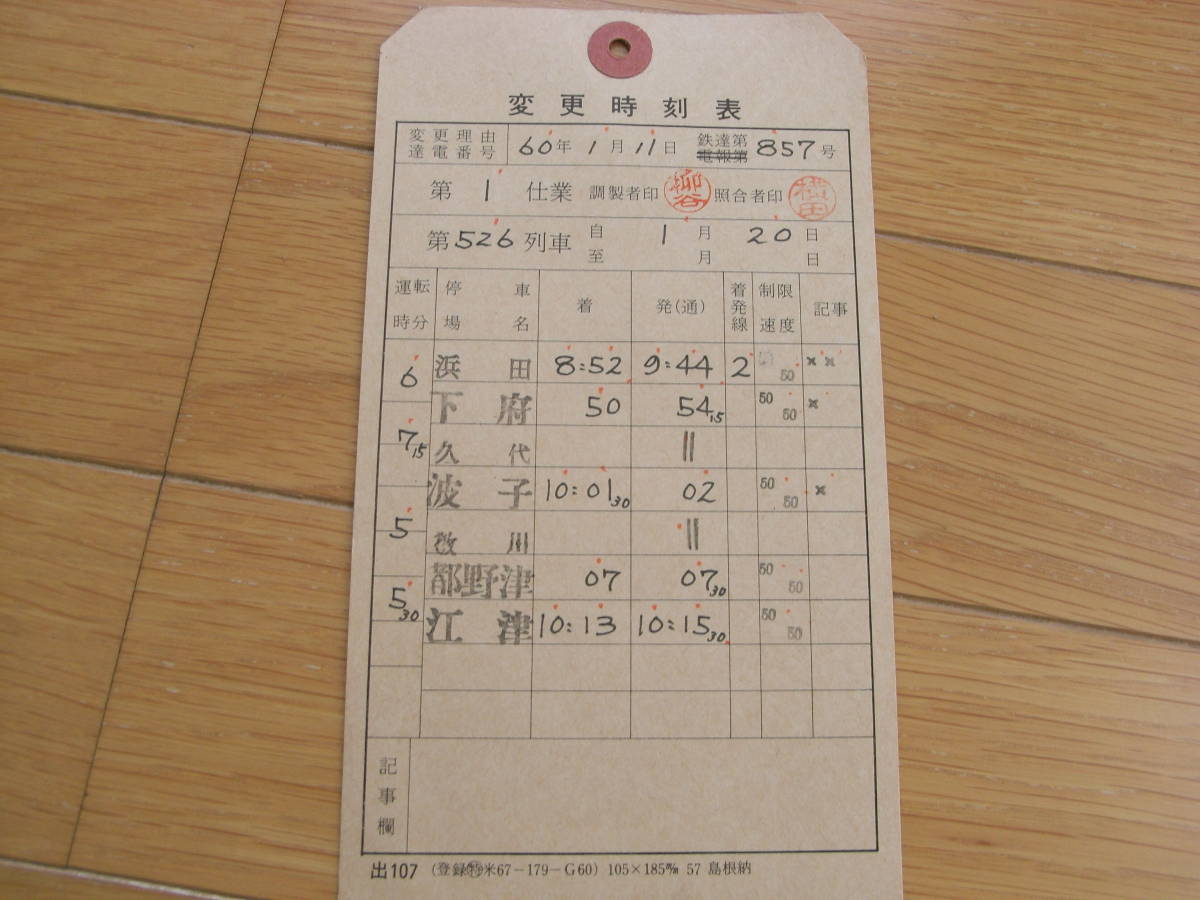 変更時刻表
変更理由 達電番号 60年 1月 11日 鉄達第 電報第 857号
第 1 仕業 調製者印 柳谷 照合者印 横田
第526列車 自 1月 20日
至 月 日
運転時分 停車場名 着 発(通) 着発線 制限速度 記事
6 浜田 8:52 9:44 2 50 × ×
下府 50 54 15 50 50 ×
7 15 久代 ||
波子 10:01 30 02 50 50 ×
5 敬川 ||
都野津 07 07 30 50 50
5 30 江津 10:13 10:15 30 50 50
記事欄
出107 (登録特米67-179-G60) 105×185m/m 57 島根納